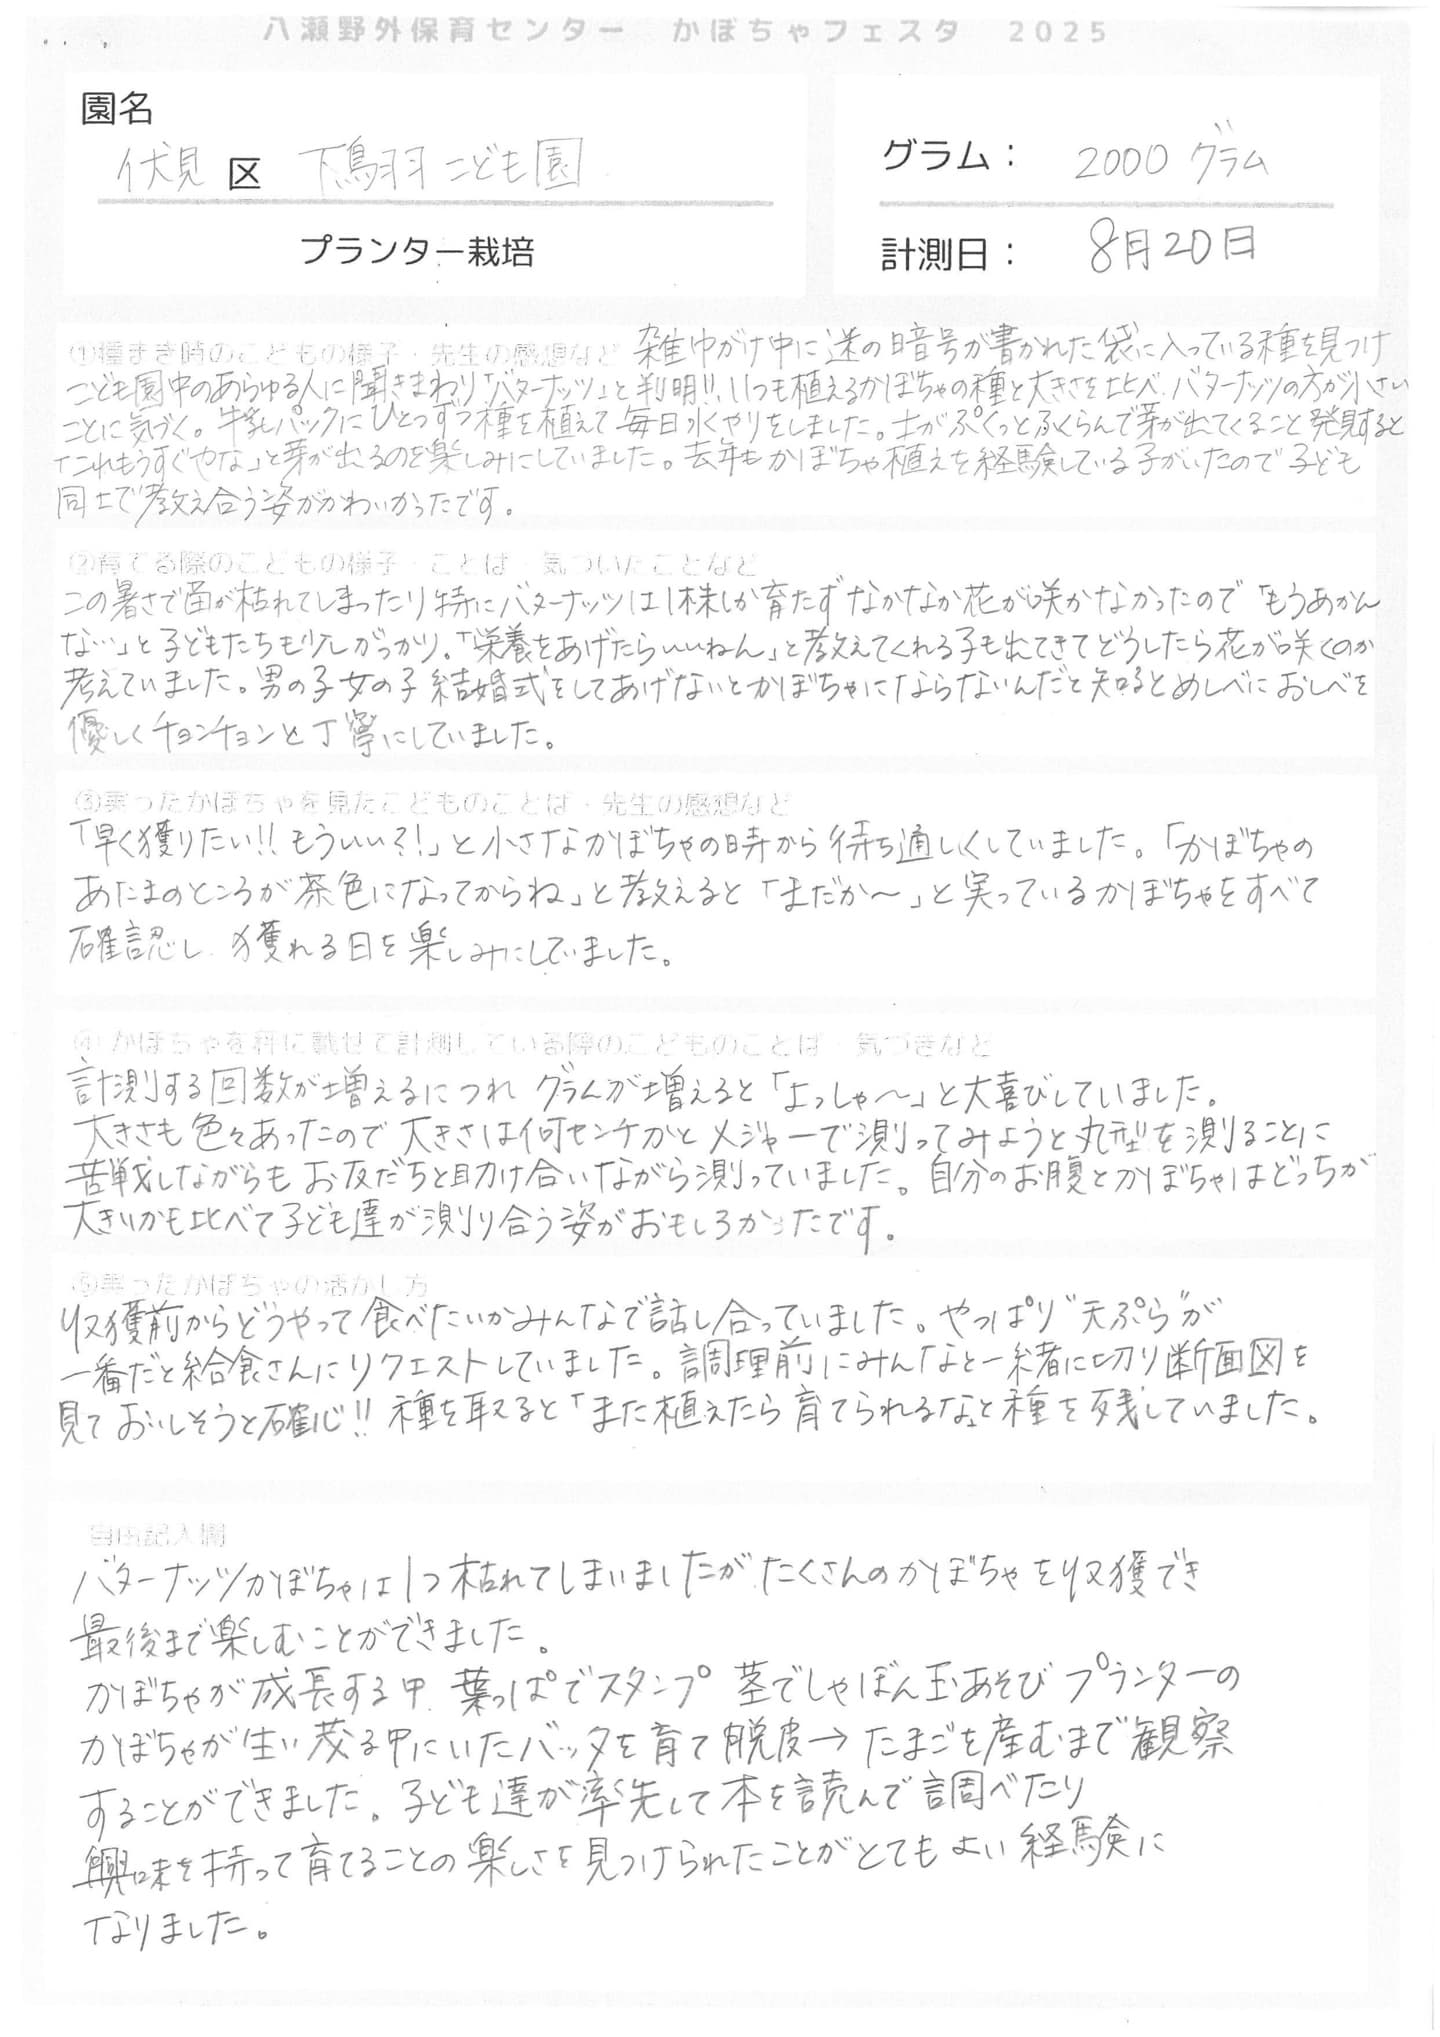 八瀬野外保育センター　かぼちゃフェスタ　2025
園名
伏見 区 下鳥羽こども園
プランター栽培
グラム： 2000 グラム
計測日： 8月20日
①種まき時のこどもの様子・先生の感想など 雑巾がけ中に謎の暗号が書かれた袋に入っている種を見つけ
こども園中のあらゆる人に聞きまわり「バターナッツ」と判明!! いつも植えるかぼちゃの種と大きさを比べ、バターナッツの方が小さい
ことに気づく。牛乳パックにひとつずつ種を植えて毎日水やりをしました。土がぷくっとふくらんで芽が出てくること発見すると
「これもうすぐやな」と芽が出るのを楽しみにしていました。去年もかぼちゃ植えを経験している子がいたので子ども
同士で教え合う姿がかわいかったです。
②育てる際のこどもの様子・ことば・気づいたことなど
この暑さで苗が枯れてしまったり特にバターナッツは1株しか育たずなかなか花が咲かなかったので「もうあかん
な…」と子どもたちも少しがっかり。「栄養をあげたらいいねん」と教えてくれる子も出てきてどうしたら花が咲くのか
考えていました。男の子女の子結婚式をしてあげないとかぼちゃにならないんだと知るとめしべにおしべを
優しくチョンチョンと丁寧にしていました。
③実ったかぼちゃを見たこどものことば・先生の感想など
「早く獲りたい!! もういい?!」と小さなかぼちゃの時から待ち通しくしていました。「かぼちゃの
あたまのところが茶色になってからね」と教えると「まだか〜」と実っているかぼちゃをすべて
確認し、獲れる日を楽しみにしていました。
④かぼちゃを秤に載せて計測している際のこどものことば・気づきなど
計測する回数が増えるにつれ グラムが増えると「よっしゃ〜」と大喜びしていました。
大きさも色々あったので大きさは何センチかとメジャーで測ってみようと丸型を測ることに
苦戦しながらもお友だちと助け合いながら測っていました。自分のお腹とかぼちゃはどっちが
大きいかも比べて子ども達が測り合う姿がおもしろかったです。
⑤実ったかぼちゃの活かし方
収獲前からどうやって食べたいかみんなで話し合っていました。やっぱり"天ぷら"が
一番だと給食さんにリクエストしていました。調理前にみんなと一緒に切り断面図を
見ておいしそうと確心!! 種を取ると「また植えたら育てられるな」と種を残していました。
自由記入欄
バターナッツかぼちゃは1つ枯れてしまいましたが、たくさんのかぼちゃを収獲でき
最後まで楽しむことができました。
かぼちゃが成長する中、葉っぱでスタンプ 茎でしゃぼん玉あそび プランターの
かぼちゃが生い茂る中にいたバッタを育て脱皮→たまごを産むまで観察
することができました。子ども達が率先して本を読んで調べたり
興味を持って育てることの楽しさを見つけられたことがとてもよい経験に
なりました。